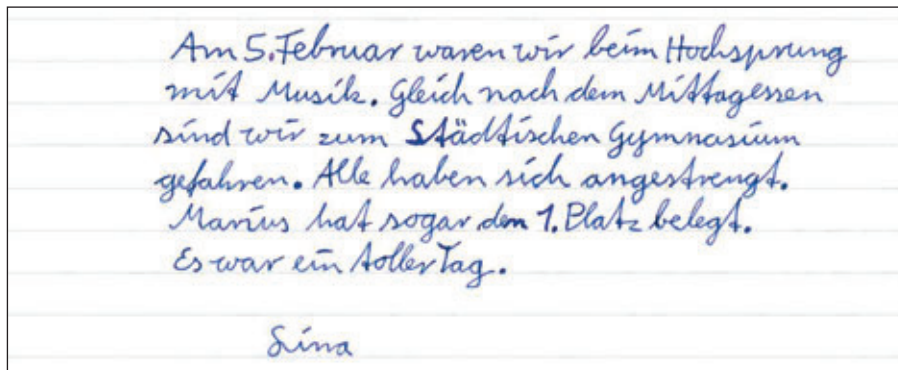 Am 5. Februar waren wir beim Hochsprung
mit Musik. Gleich nach dem Mittagessen
sind wir zum Städtischen Gymnasium
gefahren. Alle haben sich angestrengt.
Marius hat sogar den 1. Platz belegt.
Es war ein toller Tag.
Lina